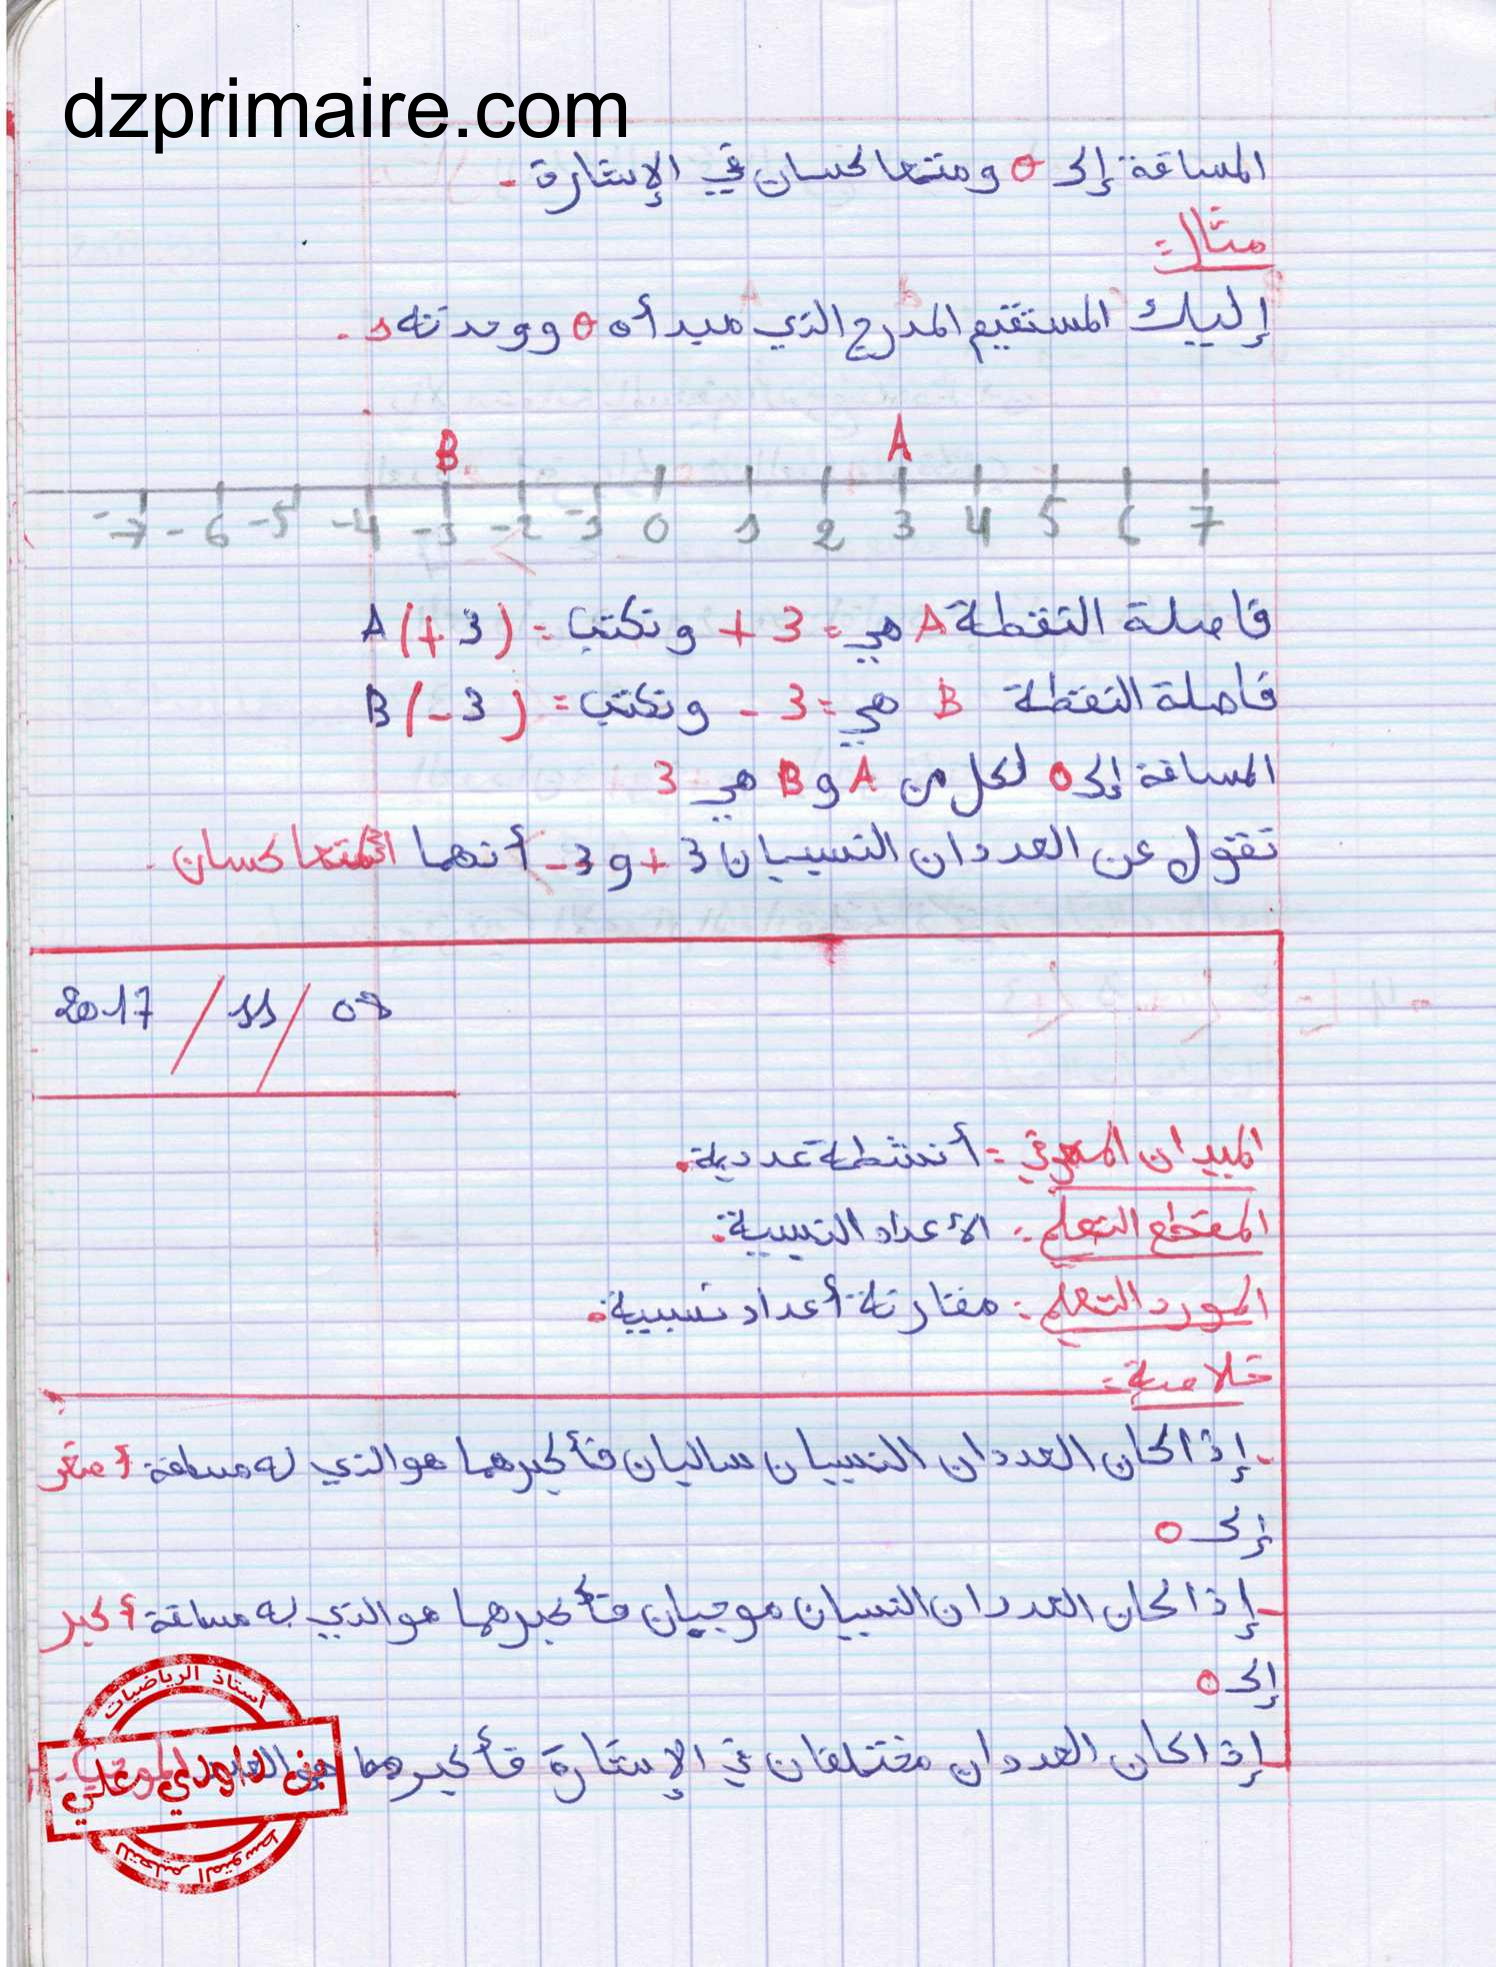 dzprimaire.com
المسافة إلى 0 ومتعاكسان في الإشارة.
مثال:
إليك المستقيم المدرج الذي مبدأه 0 ووحدته 1.
B A
-7 -6 -5 -4 -3 -2 -1 0 1 2 3 4 5 6 7
فاصلة النقطة A هي: +3 ونكتب: A(+3)
فاصلة النقطة B هي: -3 ونكتب: B(-3)
المسافة إلى 0 لكل من A و B هي 3
نقول عن العددان النسبيان +3 و -3 أنهما متعاكسان.
2017/11/07
الميدان المعرفي: أنشطة عددية.
المقطع التعلمي: الأعداد النسبية.
المورد التعلمي: مقارنة أعداد نسبية.
خلاصة:
- إذا كان العددان النسبيان سالبان فأكبرهما هو الذي له مسافة أصغر
إلى 0
- إذا كان العددان النسبيان موجبان فأكبرهما هو الذي له مسافة أكبر
إلى 0
- إذا كان العددان مختلفان في الإشارة فأكبرهما هو العدد الموجب.
أستاذ الرياضيات
علي
للتعليم المتوسط